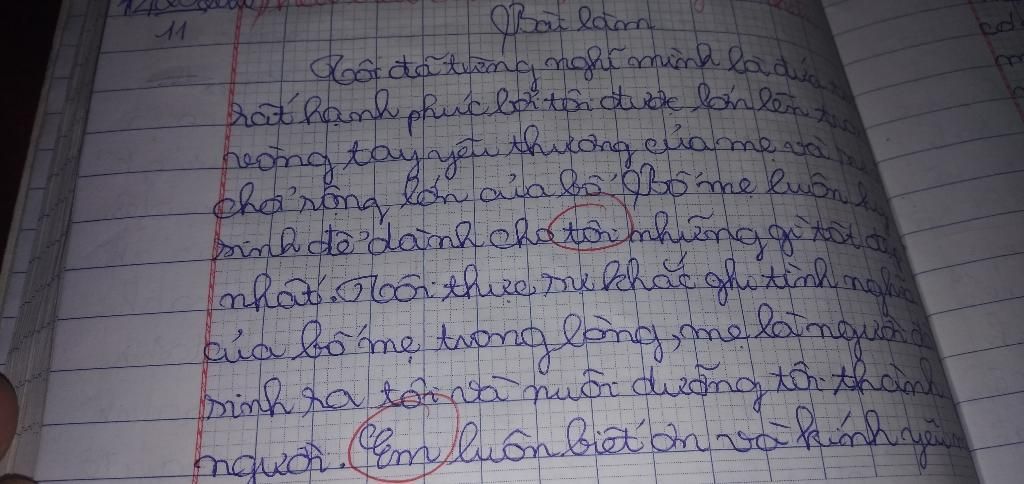 11
Bài làm
Tôi đã từng nghĩ mình là đứa
rất hạnh phúc bởi tôi được lớn lên
vòng tay yêu thương của mẹ và
chở rộng lớn của bố. Bố mẹ luôn
sinh để dành cho tôi những gì tốt
nhất. Tôi thực sự khắc ghi tình nghĩa
của bố mẹ trong lòng, mẹ là người
sinh ra tôi và nuôi dưỡng tôi thành
người. Em luôn biết ơn và kính yêu